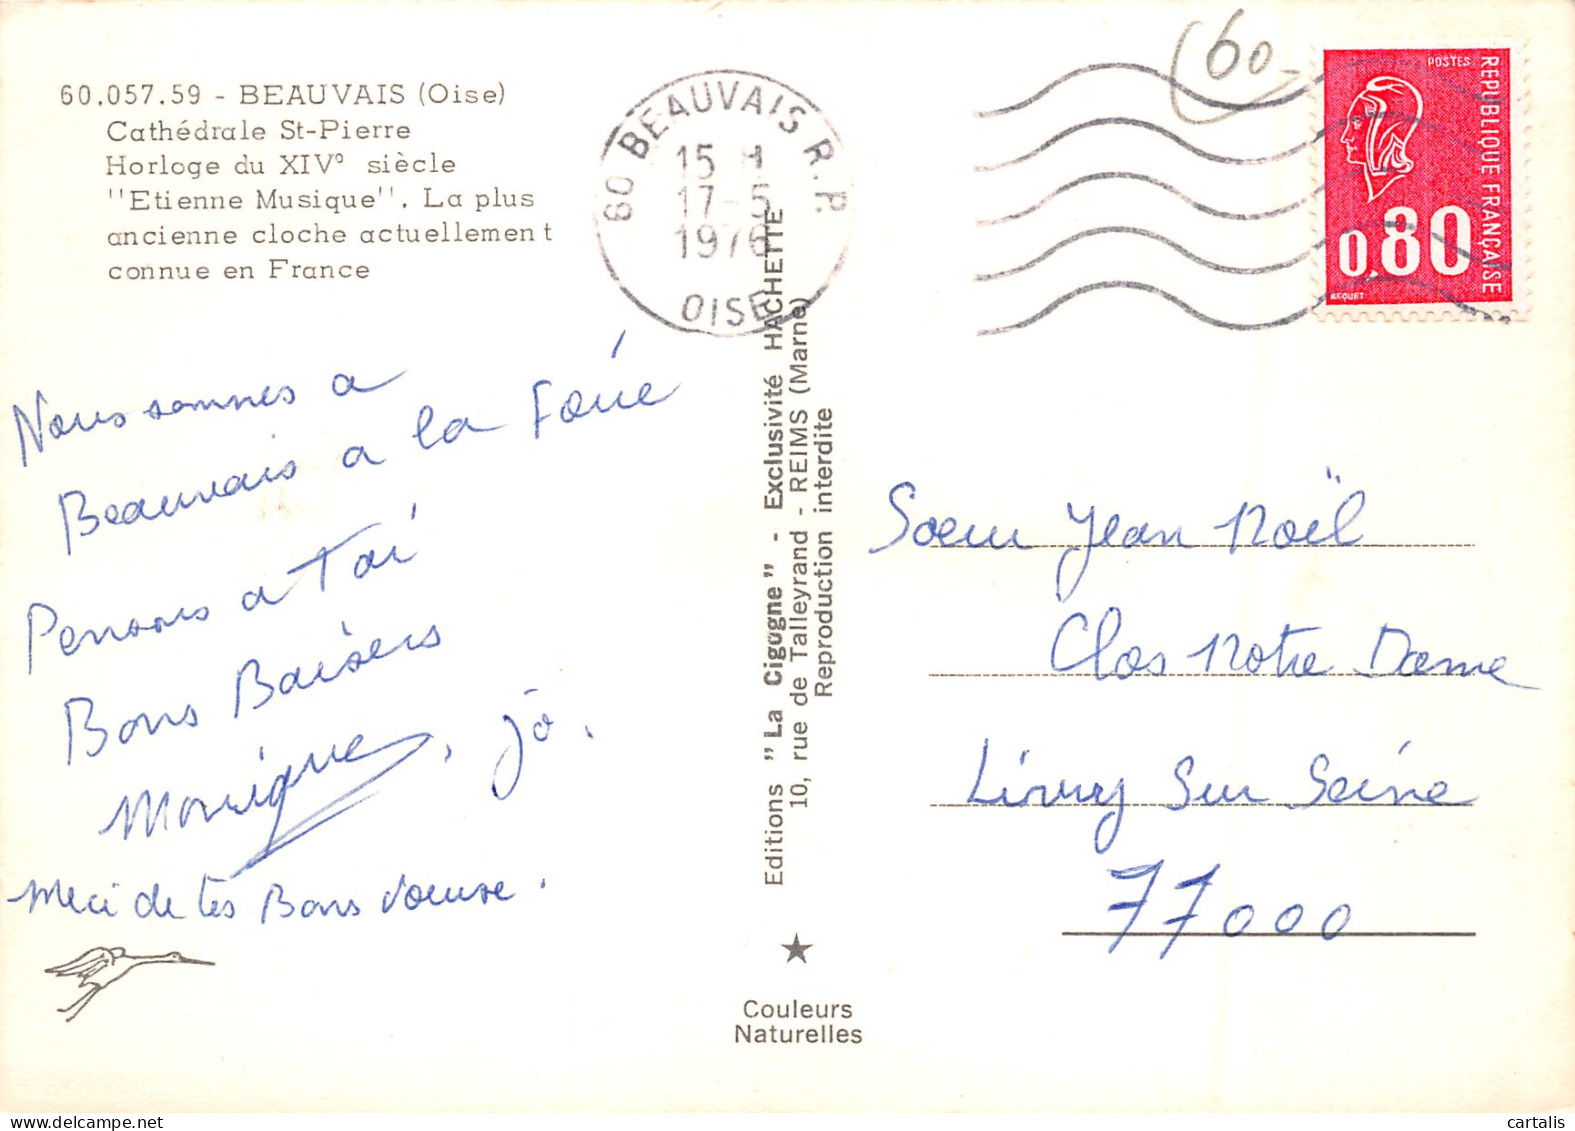 60.057.59 - BEAUVAIS (Oise)
Cathédrale St-Pierre
Horloge du XIV° siècle
''Etienne Musique''. La plus
ancienne cloche actuellement
connue en France
60 BEAUVAIS R.P.
15 H
17-5
1976
OISE
60
POSTES
REPUBLIQUE FRANÇAISE
0,80
BEQUET
Nous sommes a
Beauvais a la Foire
Pensons a toi
Bons Baisers
Monique, jo.
Merci de tes Bons voeuse.
Editions "La Cigogne" - Exclusivité HACHETTE
10, rue de Talleyrand - REIMS (Marne)
Reproduction interdite
Couleurs
Naturelles
Soeur Jean Noël
Clos Notre Dame
Livry Sur Seine
77000
cartalis